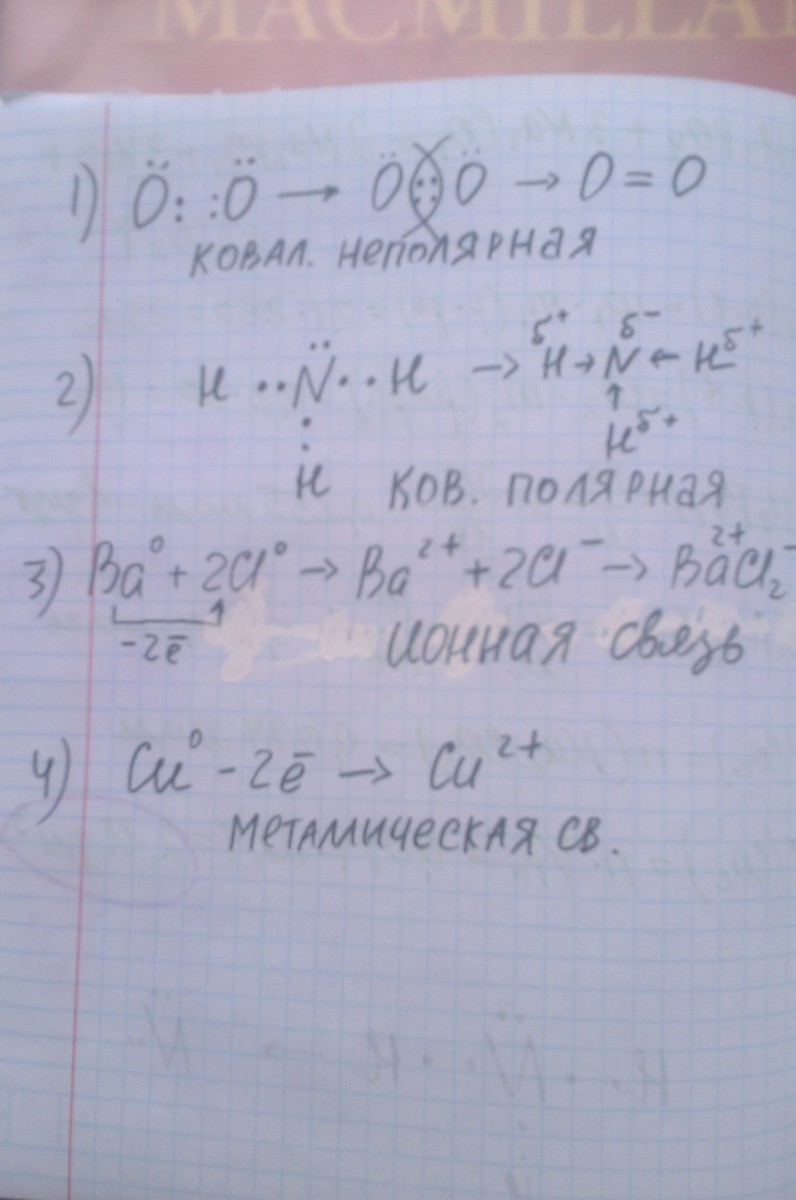 MACMILLA
1) Ö: :Ö → Ö(::)Ö → O = O
ковал. неполярная
2) H ··N̈·· H → Hδ+ → Nδ- ← Hδ+
:
↑
H
Hδ+
ков. полярная
3) Ba⁰ + 2Cl⁰ → Ba²⁺ + 2Cl⁻ → Ba²⁺Cl₂⁻
-2ē
ионная связь
4) Cu⁰ - 2ē → Cu²⁺
металическая св.